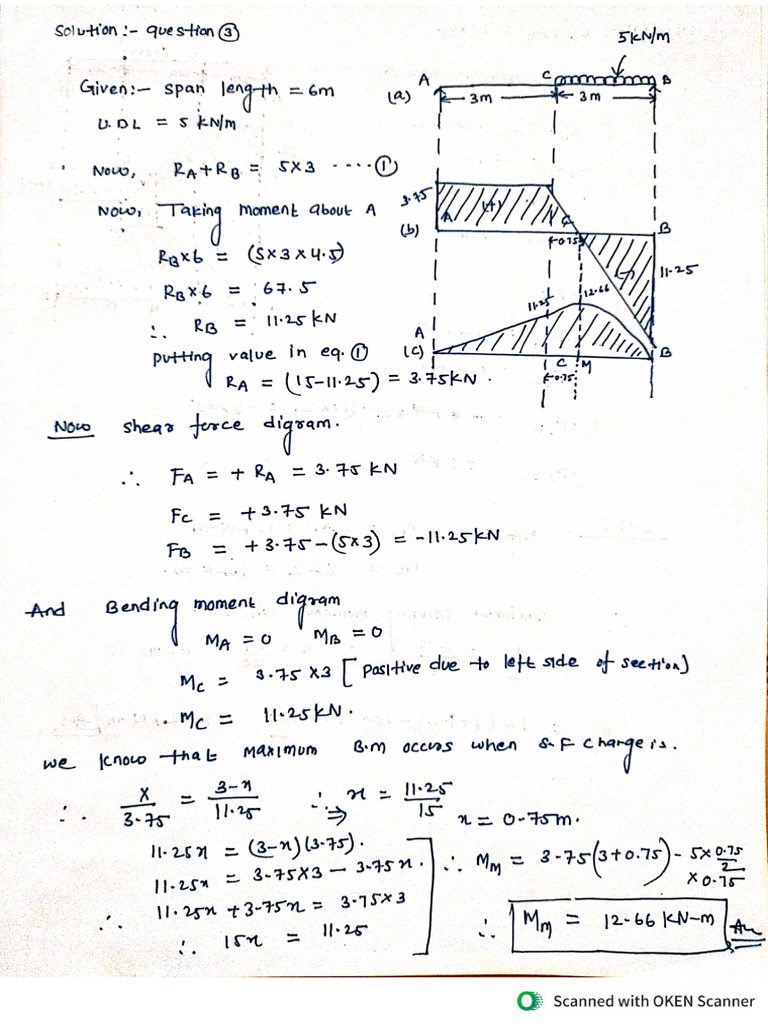 Solution:- question ③
5kN/m
A C B
Given:- span length = 6m
(a) 3m 3m
U.DL = 5 kN/m
Now, RA+RB = 5×3 ----①
3.75
Now, Taking moment about A
A (+) C
(b) B
0.75
RB×6 = (5×3×4.5)
(-) 11.25
RB×6 = 67.5
12.66
11.25
∴ RB = 11.25 kN
A
putting value in eq. ①
(c) B
C M
RA = (15-11.25) = 3.75kN.
0.75
Now shear force digram.
∴ FA = + RA = 3.75 KN
Fc = +3.75 KN
FB = +3.75-(5×3) = -11.25KN
And Bending moment digram
MA = 0 MB = 0
Mc = 3.75 ×3 [positive due to left side of section]
Mc = 11.25kN.
we know that maximum B.M occurs when S.F charge is.
∴ x/3.75 = 3-x/11.25 ∴ ⇒ x = 11.25/15
x = 0.75m.
11.25x = (3-x)(3.75).
11.25x = 3.75×3 - 3.75x.
∴ 11.25x +3.75x = 3.75×3
∴ 15x = 11.25
∴ Mm = 3.75(3+0.75) - 5×0.75/2 ×0.75
∴ Mm = 12.66 KN-m An
Scanned with OKEN Scanner